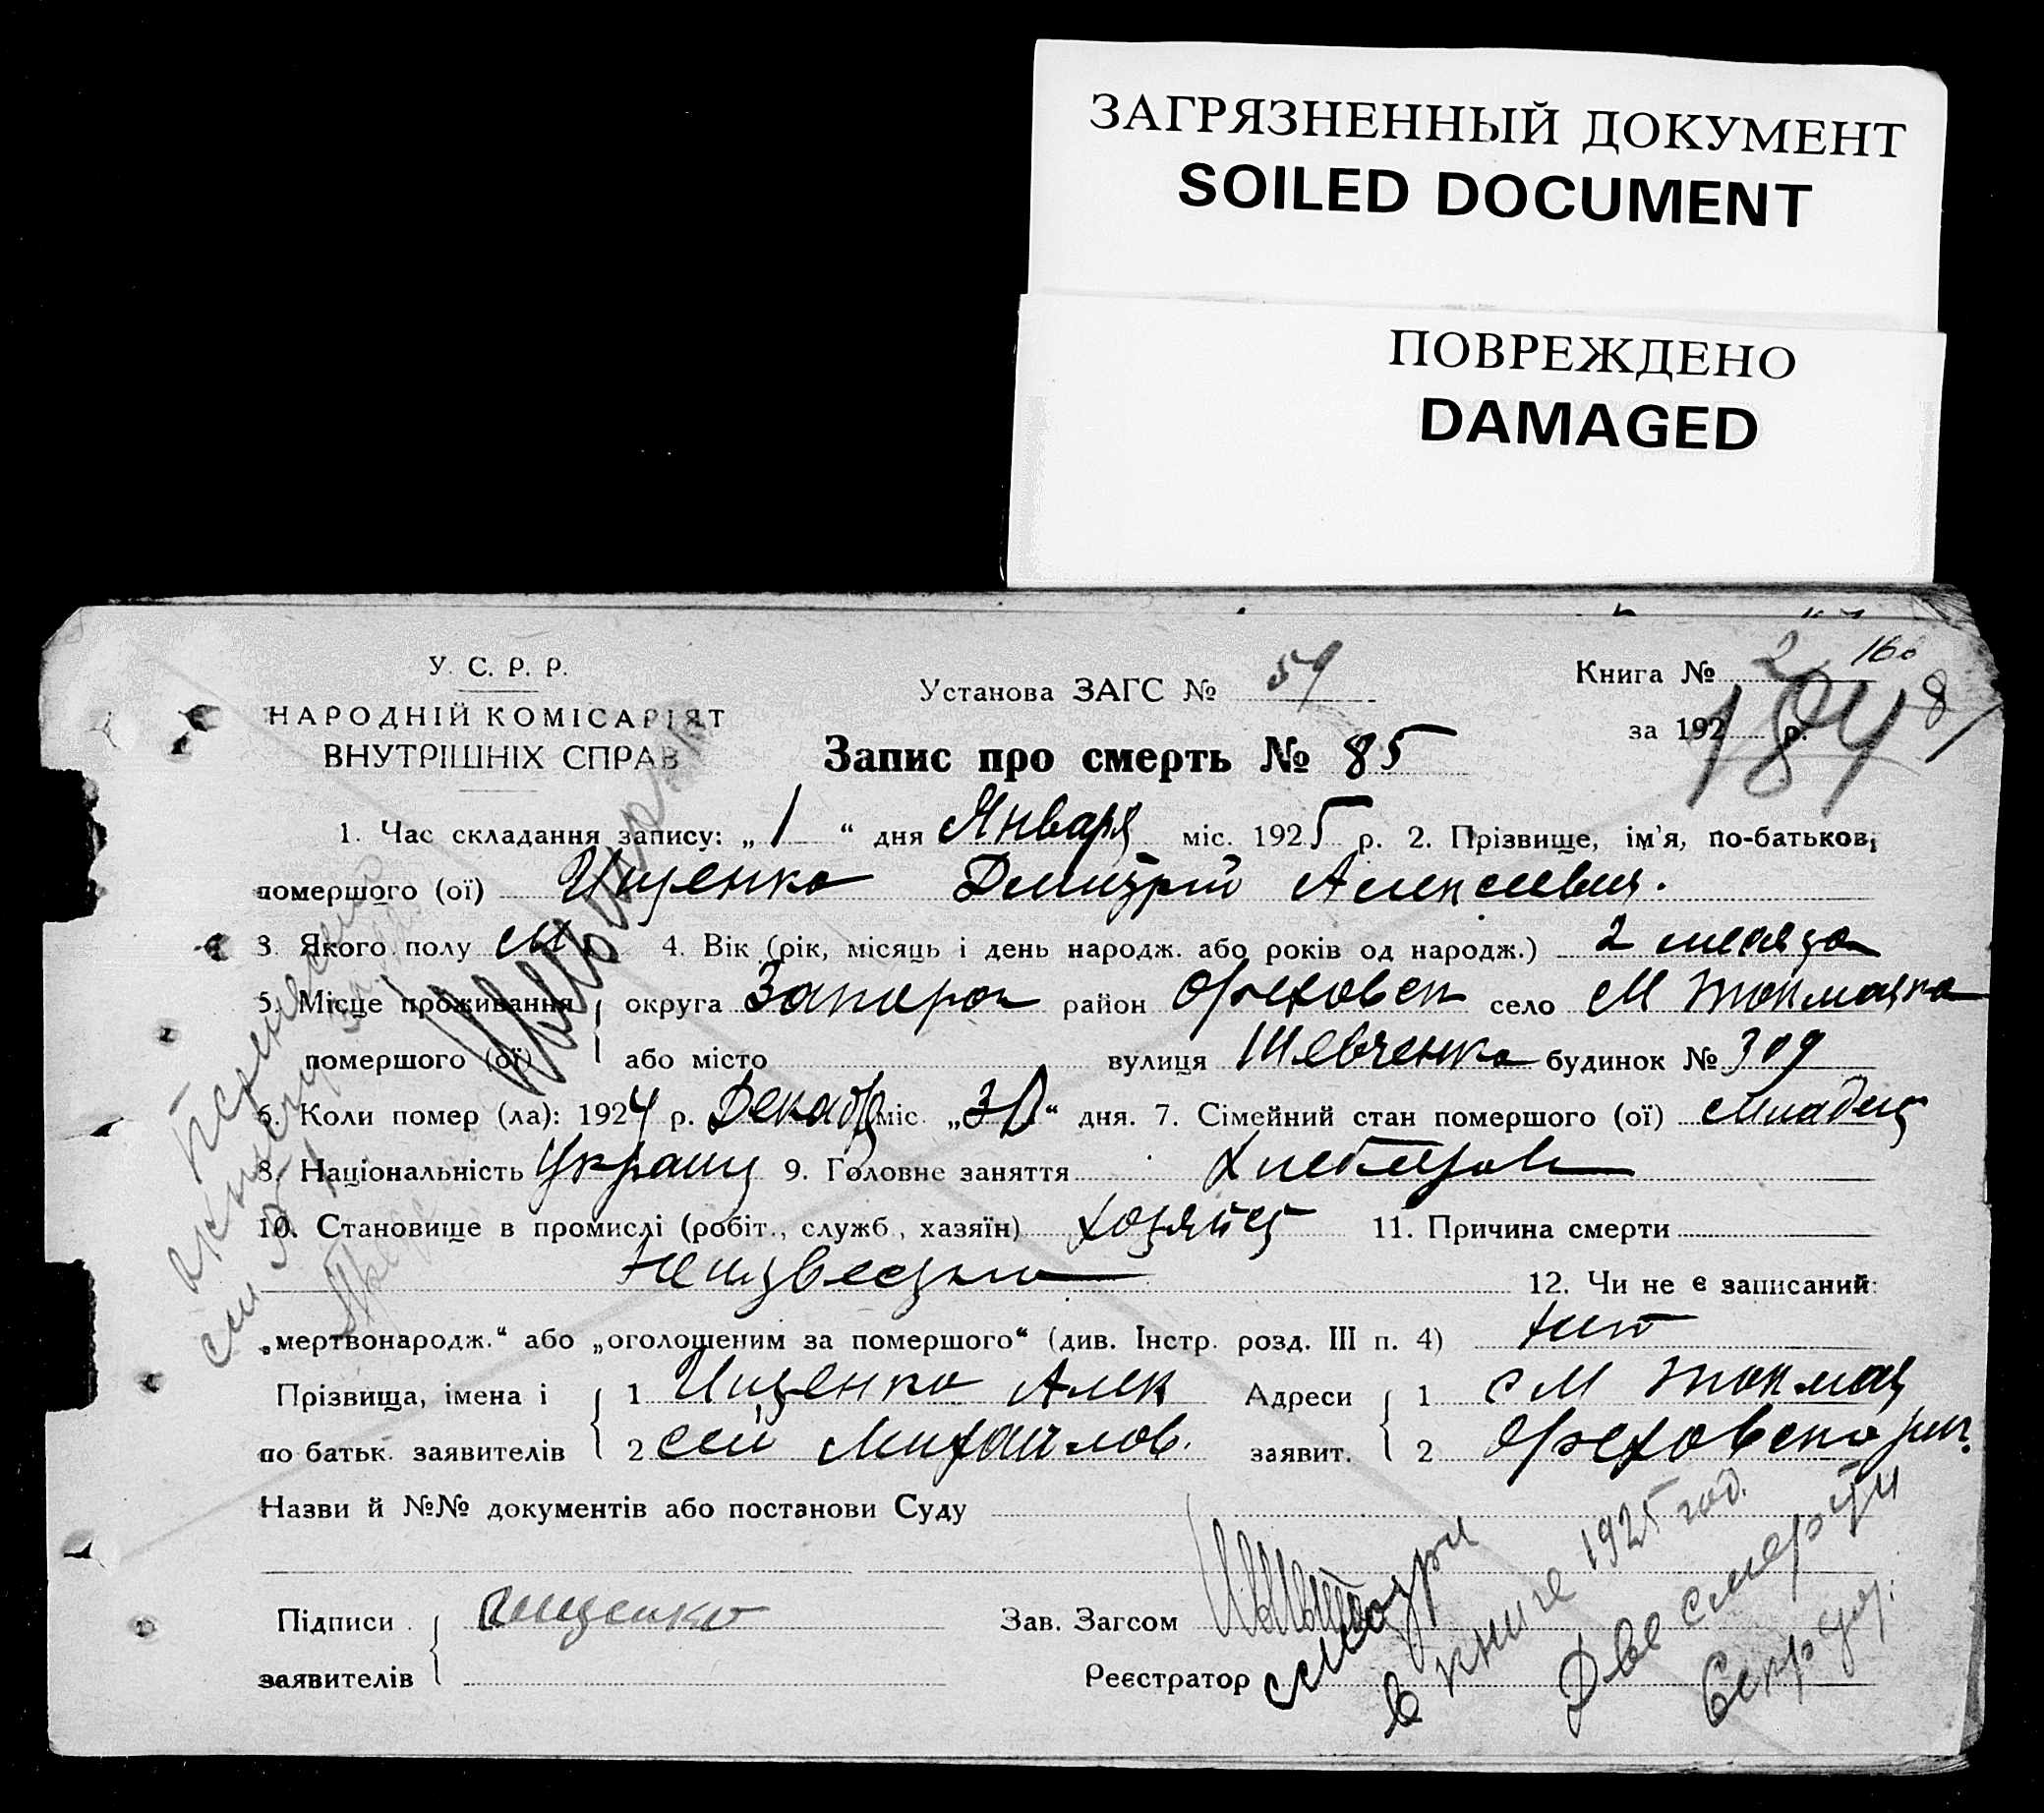 ЗАГРЯЗНЕННЫЙ ДОКУМЕНТ
SOILED DOCUMENT
ПОВРЕЖДЕНО
DAMAGED
У. С. Р. Р.
НАРОДНІЙ КОМІСАРІЯТ
ВНУТРІШНІХ СПРАВ
Установа ЗАГС № 54
Книга № 2
160
8
за 192 р.
184
Запис про смерть № 85
1. Час складання запису: „ 1 “ дня Января міс. 1925 р. 2. Прізвище, ім'я, по-батькові
помершого (ої) Ищенко Дмитрий Алексеевич.
3. Якого полу м. 4. Вік (рік, місяць і день народж. або років од народж.) 2 месяца
5. Місце проживання округа Запорож район Ореховск село М Токмачка
помершого (ої) або місто вулиця Шевченко будинок № 309
6. Коли помер (ла): 1924 р. Декабря міс. „30“ дня. 7. Сімейний стан помершого (ої) Младец
8. Національність Украинц 9. Головне заняття Хлебороб
10. Становище в промислі (робіт., служб., хазяїн) хозяин 11. Причина смерти
Неизвестно 12. Чи не є записаний
„мертвонародж.“ або „оголошеним за помершого“ (див. Інстр. розд. III п. 4) нет
Прізвища, імена і 1 Ищенко Алек Адреси 1 с М Токмач
по батьк. заявителів 2 сей Михайлов. заявит. 2 Ореховского рай.
Назви й №№ документів або постанови Суду
Підписи Ищенко Зав. Загсом
заявителів Реєстратор
Смотри
в книге 1925 год.
Две смерти